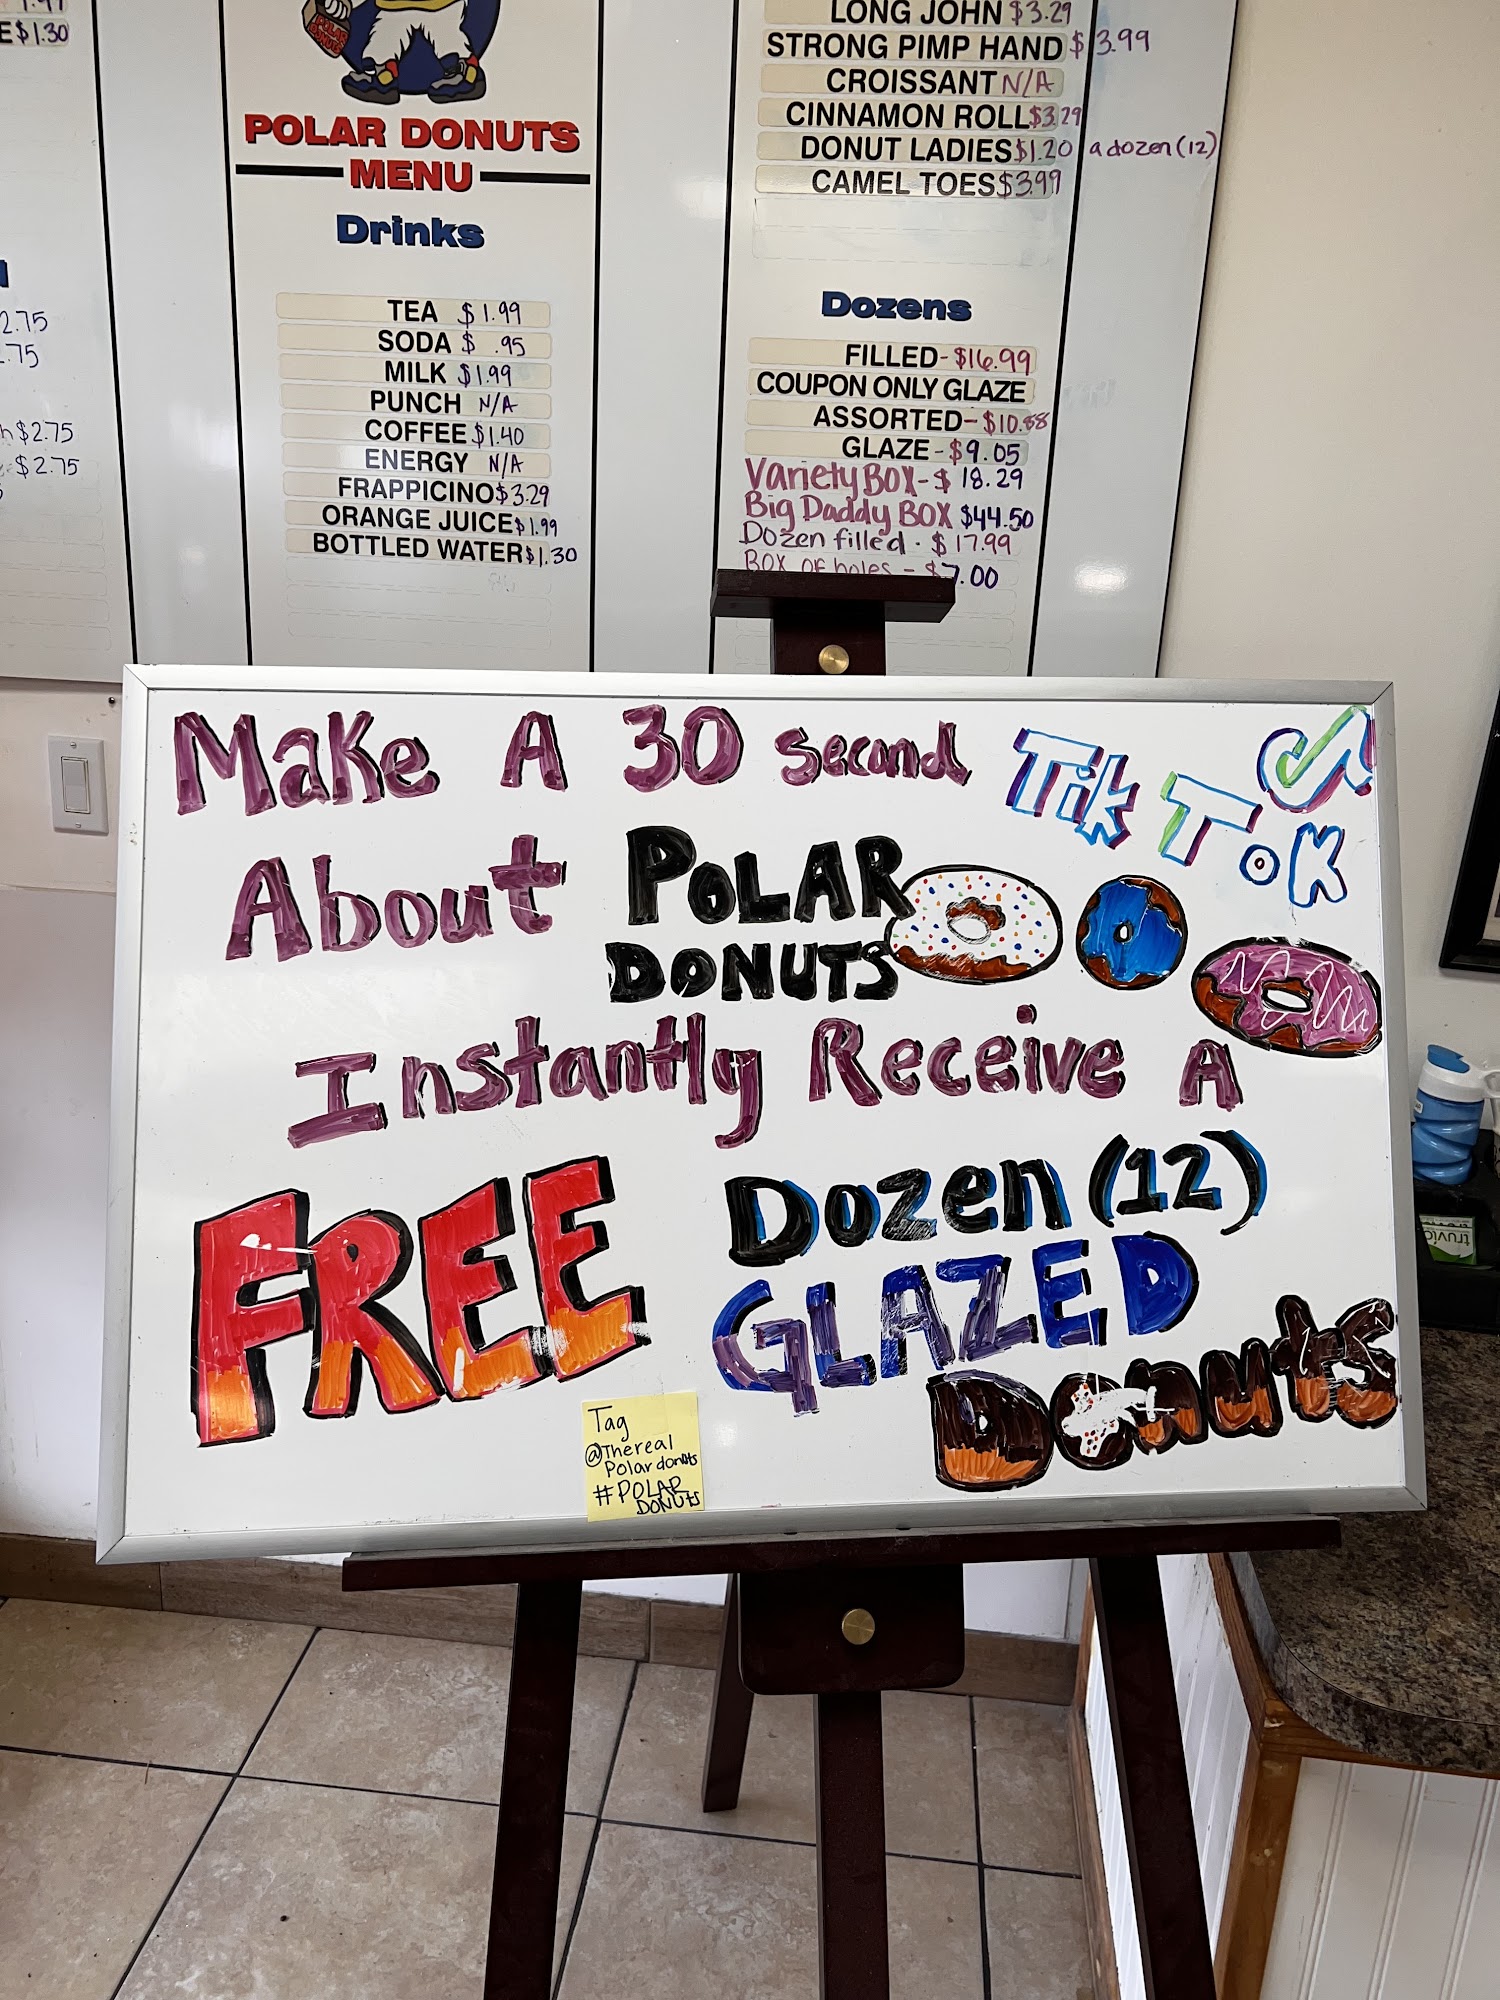 E $1.30
2.75
.75
h $2.75
$2.75
POLAR
DONUTS
POLAR DONUTS
MENU
Drinks
TEA $1.99
SODA $ .95
MILK $1.99
PUNCH N/A
COFFEE $1.40
ENERGY N/A
FRAPPICINO $3.29
ORANGE JUICE $1.99
BOTTLED WATER $1.30
LONG JOHN $3.29
STRONG PIMP HAND $3.99
CROISSANT N/A
CINNAMON ROLL $3.29
DONUT LADIES $1.20 a dozen (12)
CAMEL TOES $3.99
Dozens
FILLED - $16.99
COUPON ONLY GLAZE
ASSORTED - $10.88
GLAZE - $9.05
Variety BOX - $18.29
Big Daddy BOX $44.50
Dozen filled - $17.99
BOX OF holes - $7.00
Make A 30 second TikTok
About POLAR
DONUTS
Instantly Receive A
FREE Dozen (12)
GLAZED
Donuts
Tag
@Thereal
Polardonuts
#POLAR
DONUTS
truvia